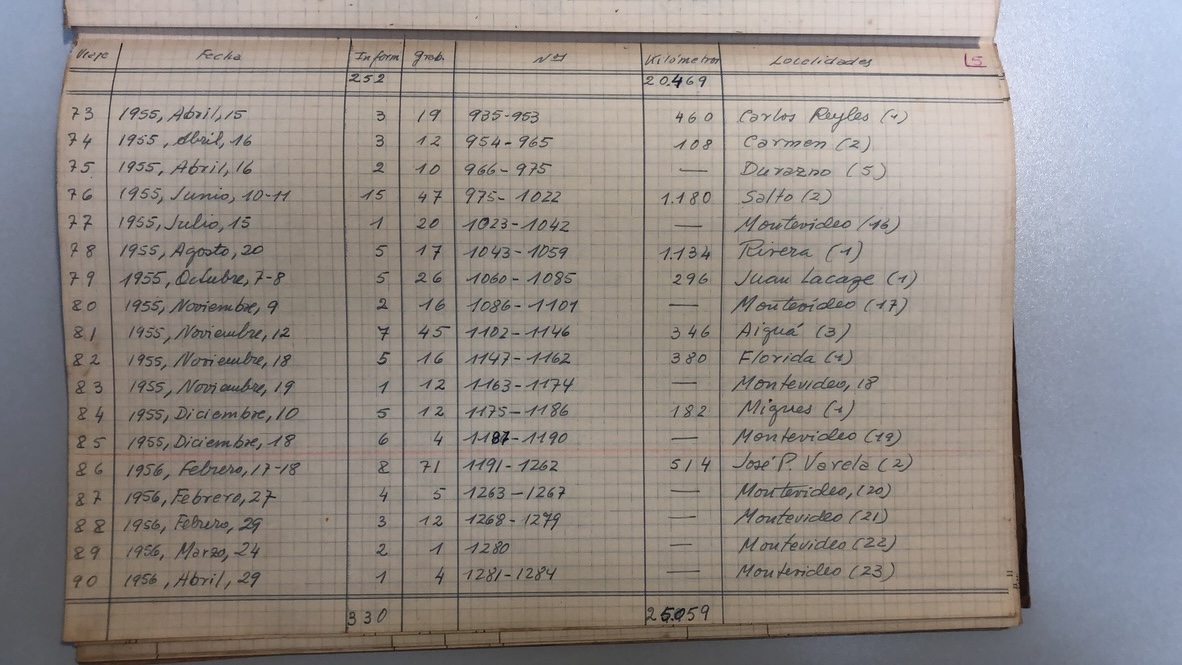 Viaje Fecha Inform grab. Nos Kilómetros Localidades 5
252 20.469
73 1955, Abril, 15 3 19 935-953 460 Carlos Reyles (1)
74 1955, Abril, 16 3 12 954-965 108 Carmen (2)
75 1955, Abril, 16 2 10 966-975 — Durazno (5)
76 1955, Junio, 10-11 15 47 975-1022 1.180 Salto (2)
77 1955, Julio, 15 1 20 1023-1042 — Montevideo (16)
78 1955, Agosto, 20 5 17 1043-1059 1.134 Rivera (1)
79 1955, Octubre, 7-8 5 26 1060-1085 296 Juan Lacaze (1)
80 1955, Noviembre, 9 2 16 1086-1101 — Montevideo (17)
81 1955, Noviembre, 12 7 45 1102-1146 346 Aiguá (3)
82 1955, Noviembre, 18 5 16 1147-1162 380 Florida (1)
83 1955, Noviembre, 19 1 12 1163-1174 — Montevideo, 18
84 1955, Diciembre, 10 5 12 1175-1186 182 Migues (1)
85 1955, Diciembre, 18 6 4 1187-1190 — Montevideo (19)
86 1956, Febrero, 17-18 8 71 1191-1262 514 José P. Varela (2)
87 1956, Febrero, 27 4 5 1263-1267 — Montevideo, (20)
88 1956, Febrero, 29 3 12 1268-1279 — Montevideo (21)
89 1956, Marzo, 24 2 1 1280 — Montevideo (22)
90 1956, Abril, 29 1 4 1281-1284 — Montevideo (23)
330 25.059